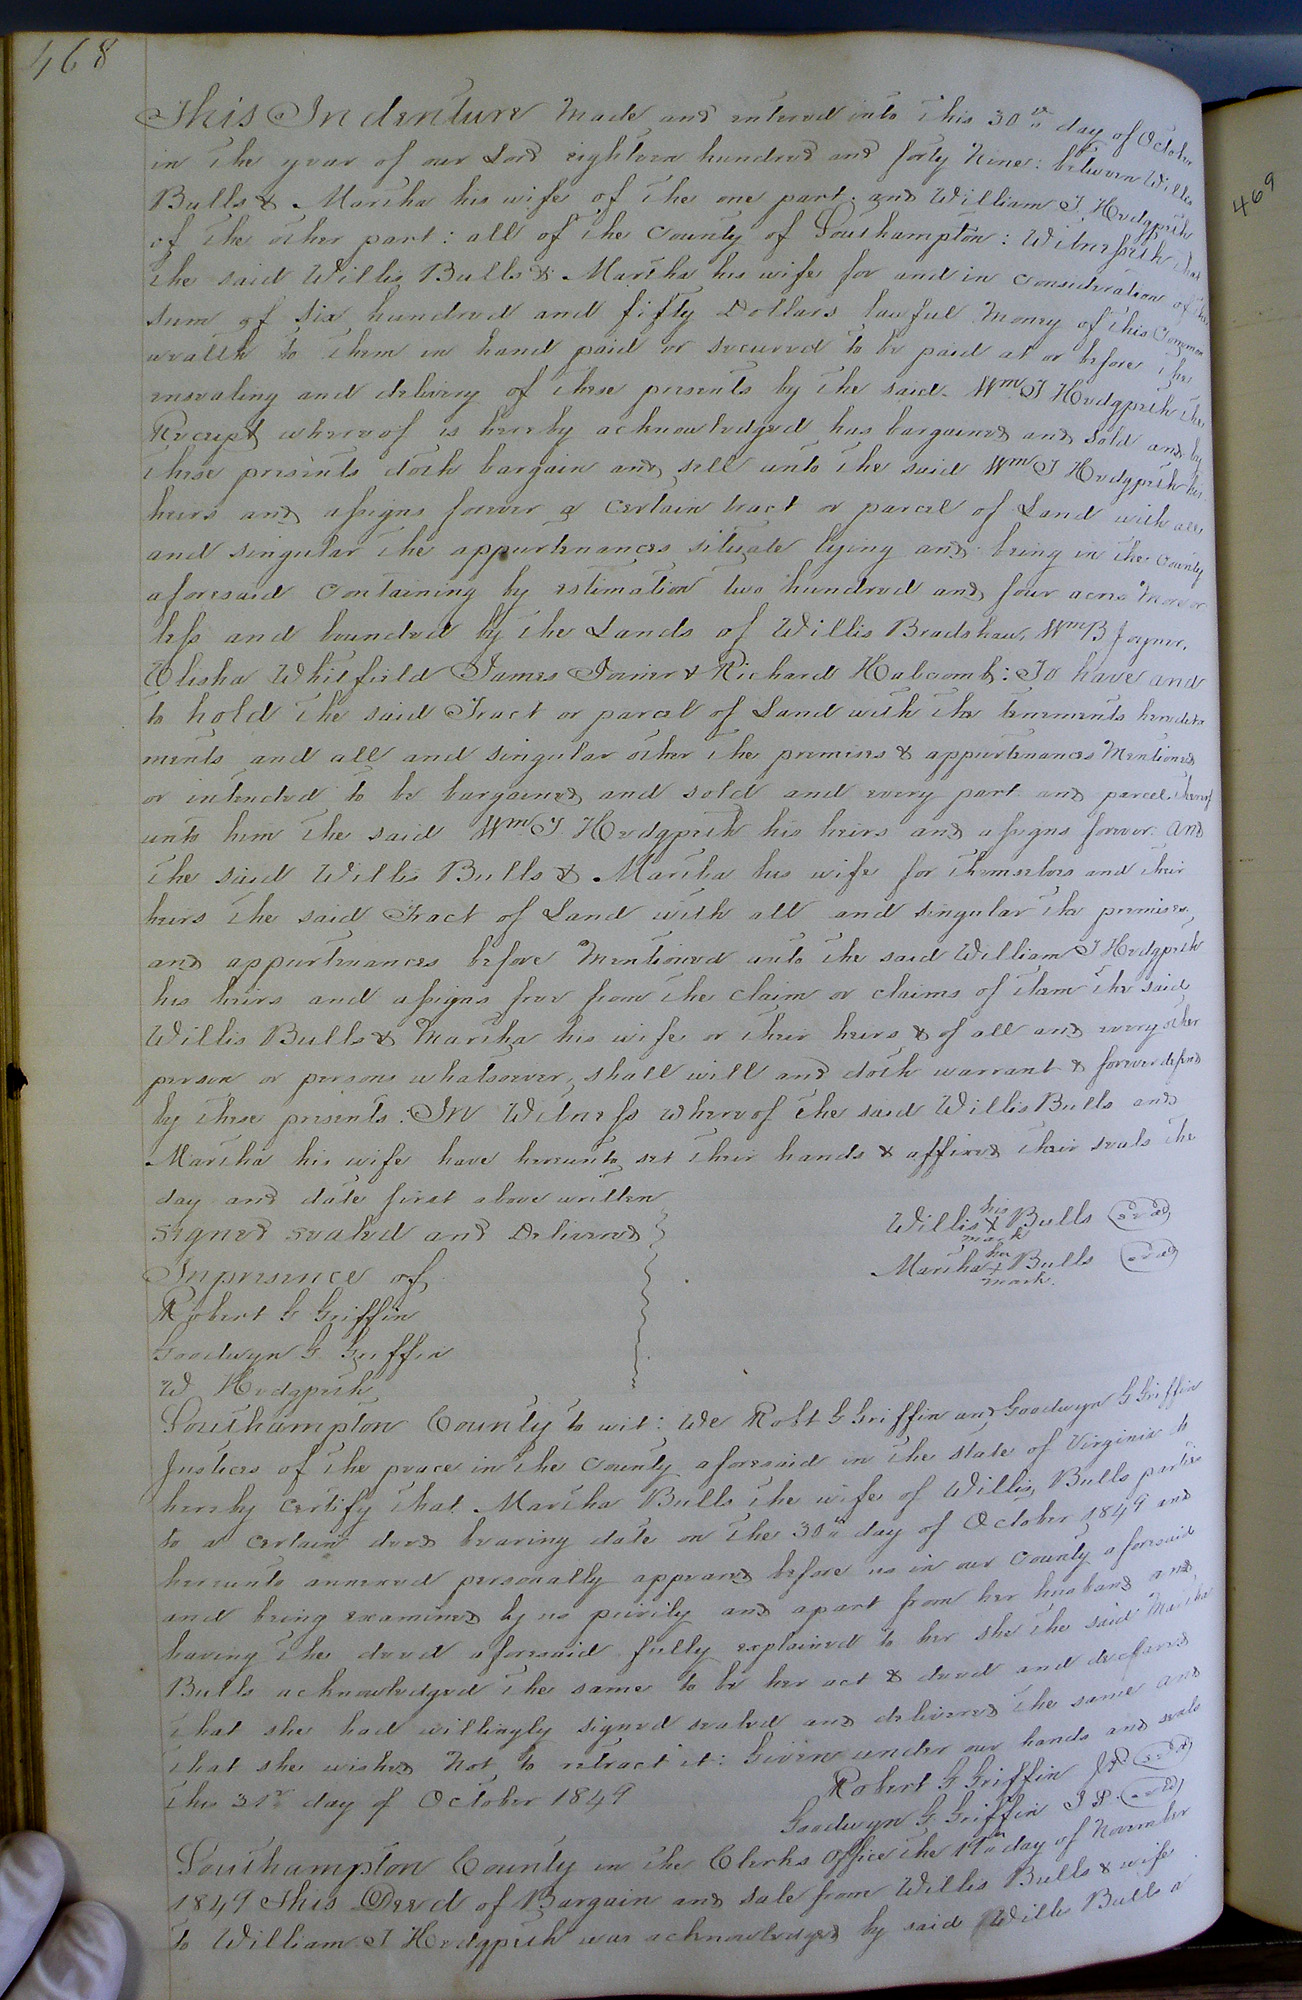 468
This Indenture Made and entered into this 30th day of October
in the year of our Lord eighteen hundred and forty Nine: between Willis
Bulls & Martha his wife of the one part: and William J Hedgpeth
of the other part: all of the County of Southampton: Witnesseth that
the said Willis Bulls & Martha his wife for and in consideration of the
sum of six hundred and fifty Dollars lawful Money of this Common
wealth to them in hand paid or secured to be paid at or before the
ensealing and delivery of these presents by the said Wm J Hedgpeth the
Receipt whereof is hereby acknowledged has bargained and sold and by
these presents doth bargain and sell unto the said Wm J Hedgpeth his
heirs and assigns forever a certain tract or parcel of Land with all
and singular the appurtenances situate lying and being in the County
aforesaid Containing by estimation two hundred and four acres More or
less and bounded by the Lands of Willis Bradshaw, Wm B Joyner,
Elisha Whitfield James Joiner & Richard Holcomb: To have and
to hold the said Tract or parcel of Land with the tenements heredita
ments and all and singular other the premises & appurtenances Mentioned
or intended to be bargained and sold and every part and parcel thereof
unto him the said Wm J Hedgpeth his heirs and assigns forever. And
the said Willis Bulls & Martha his wife for themselves and their
heirs the said Tract of Land with all and singular the premises
and appurtenances before Mentioned unto the said William J Hedgpeth
his heirs and assigns free from the claim or claims of them the said
Willis Bulls & Martha his wife or their heirs & of all and every other
person or persons whatsoever, shall will and doth warrant & forever defend
by these presents: In Witness whereof the said Willis Bulls and
Martha his wife have hereunto set their hands & affixed their seals the
day and date first above written
Signed sealed and Delivered
Willis his X mark Bulls seal
In presence of
Martha her + mark Bulls seal
Robert G Griffin
Goodwyn G Griffin
W Hedgpeth
Southampton County to wit: We Robt G Griffin and Goodwyn G Griffin
Justices of the peace in the County aforesaid in the state of Virginia do
hereby certify that Martha Bulls the wife of Willis Bulls parties
to a certain deed bearing date on the 30th day of October 1849 and
hereunto annexed personally appeared before us in our County aforesaid
and being examined by us privily and apart from her husband and
having the deed aforesaid fully explained to her she the said Martha
Bulls acknowledged the same to be her act & deed and declared
that she had willingly signed sealed and delivered the same and
that she wished Not to retract it: Given under our hands and seals
this 31st day of October 1849
Robert G Griffin J.P. seal
Goodwyn G Griffin J P. seal
Southampton County in the Clerks Office the 19th day of November
1849 This Deed of Bargain and sale from Willis Bulls & wife
to William J Hedgpeth was acknowledged by said Willis Bulls a
469